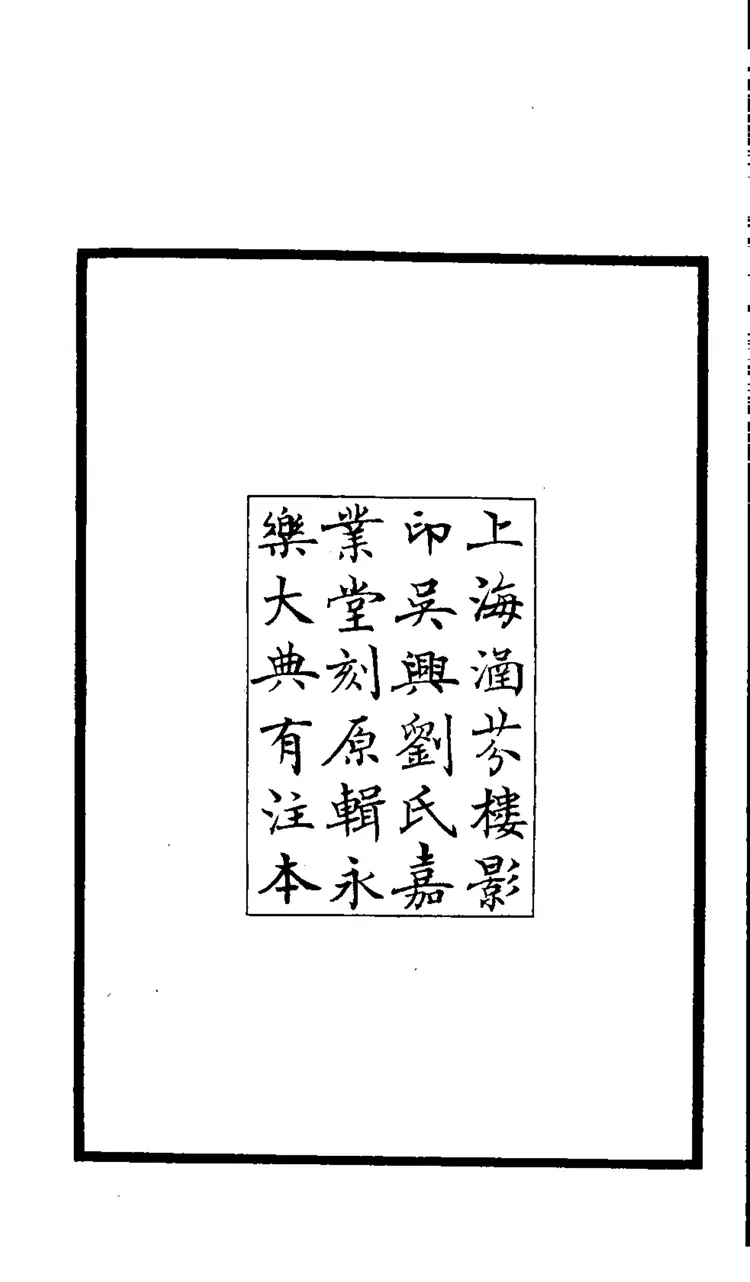 上海涵芬樓影
印吳興劉氏嘉
業堂刻原輯永
樂大典有注本